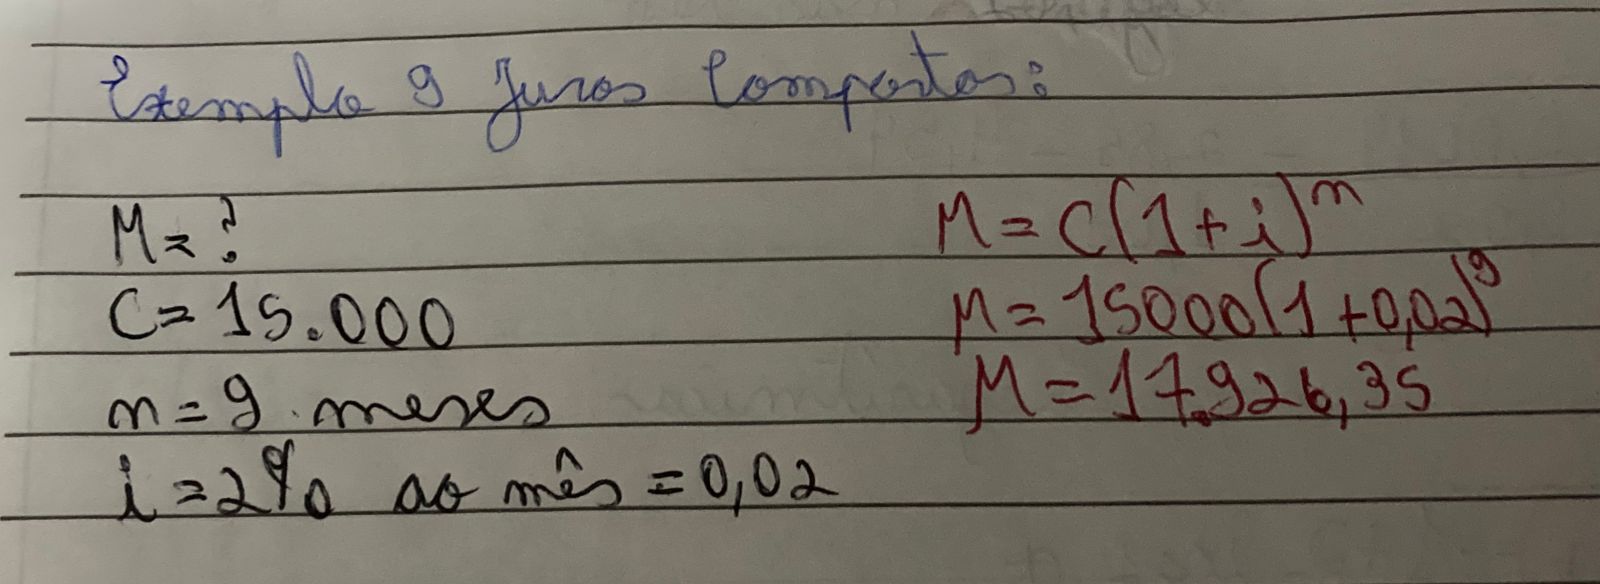 Exemplo 9 Juros Compostos:
M=?
C=15.000
n=9 meses
i=2% ao mês=0,02
M=C(1+i)ⁿ
M=15000(1+0,02)⁹
M=17.926,35